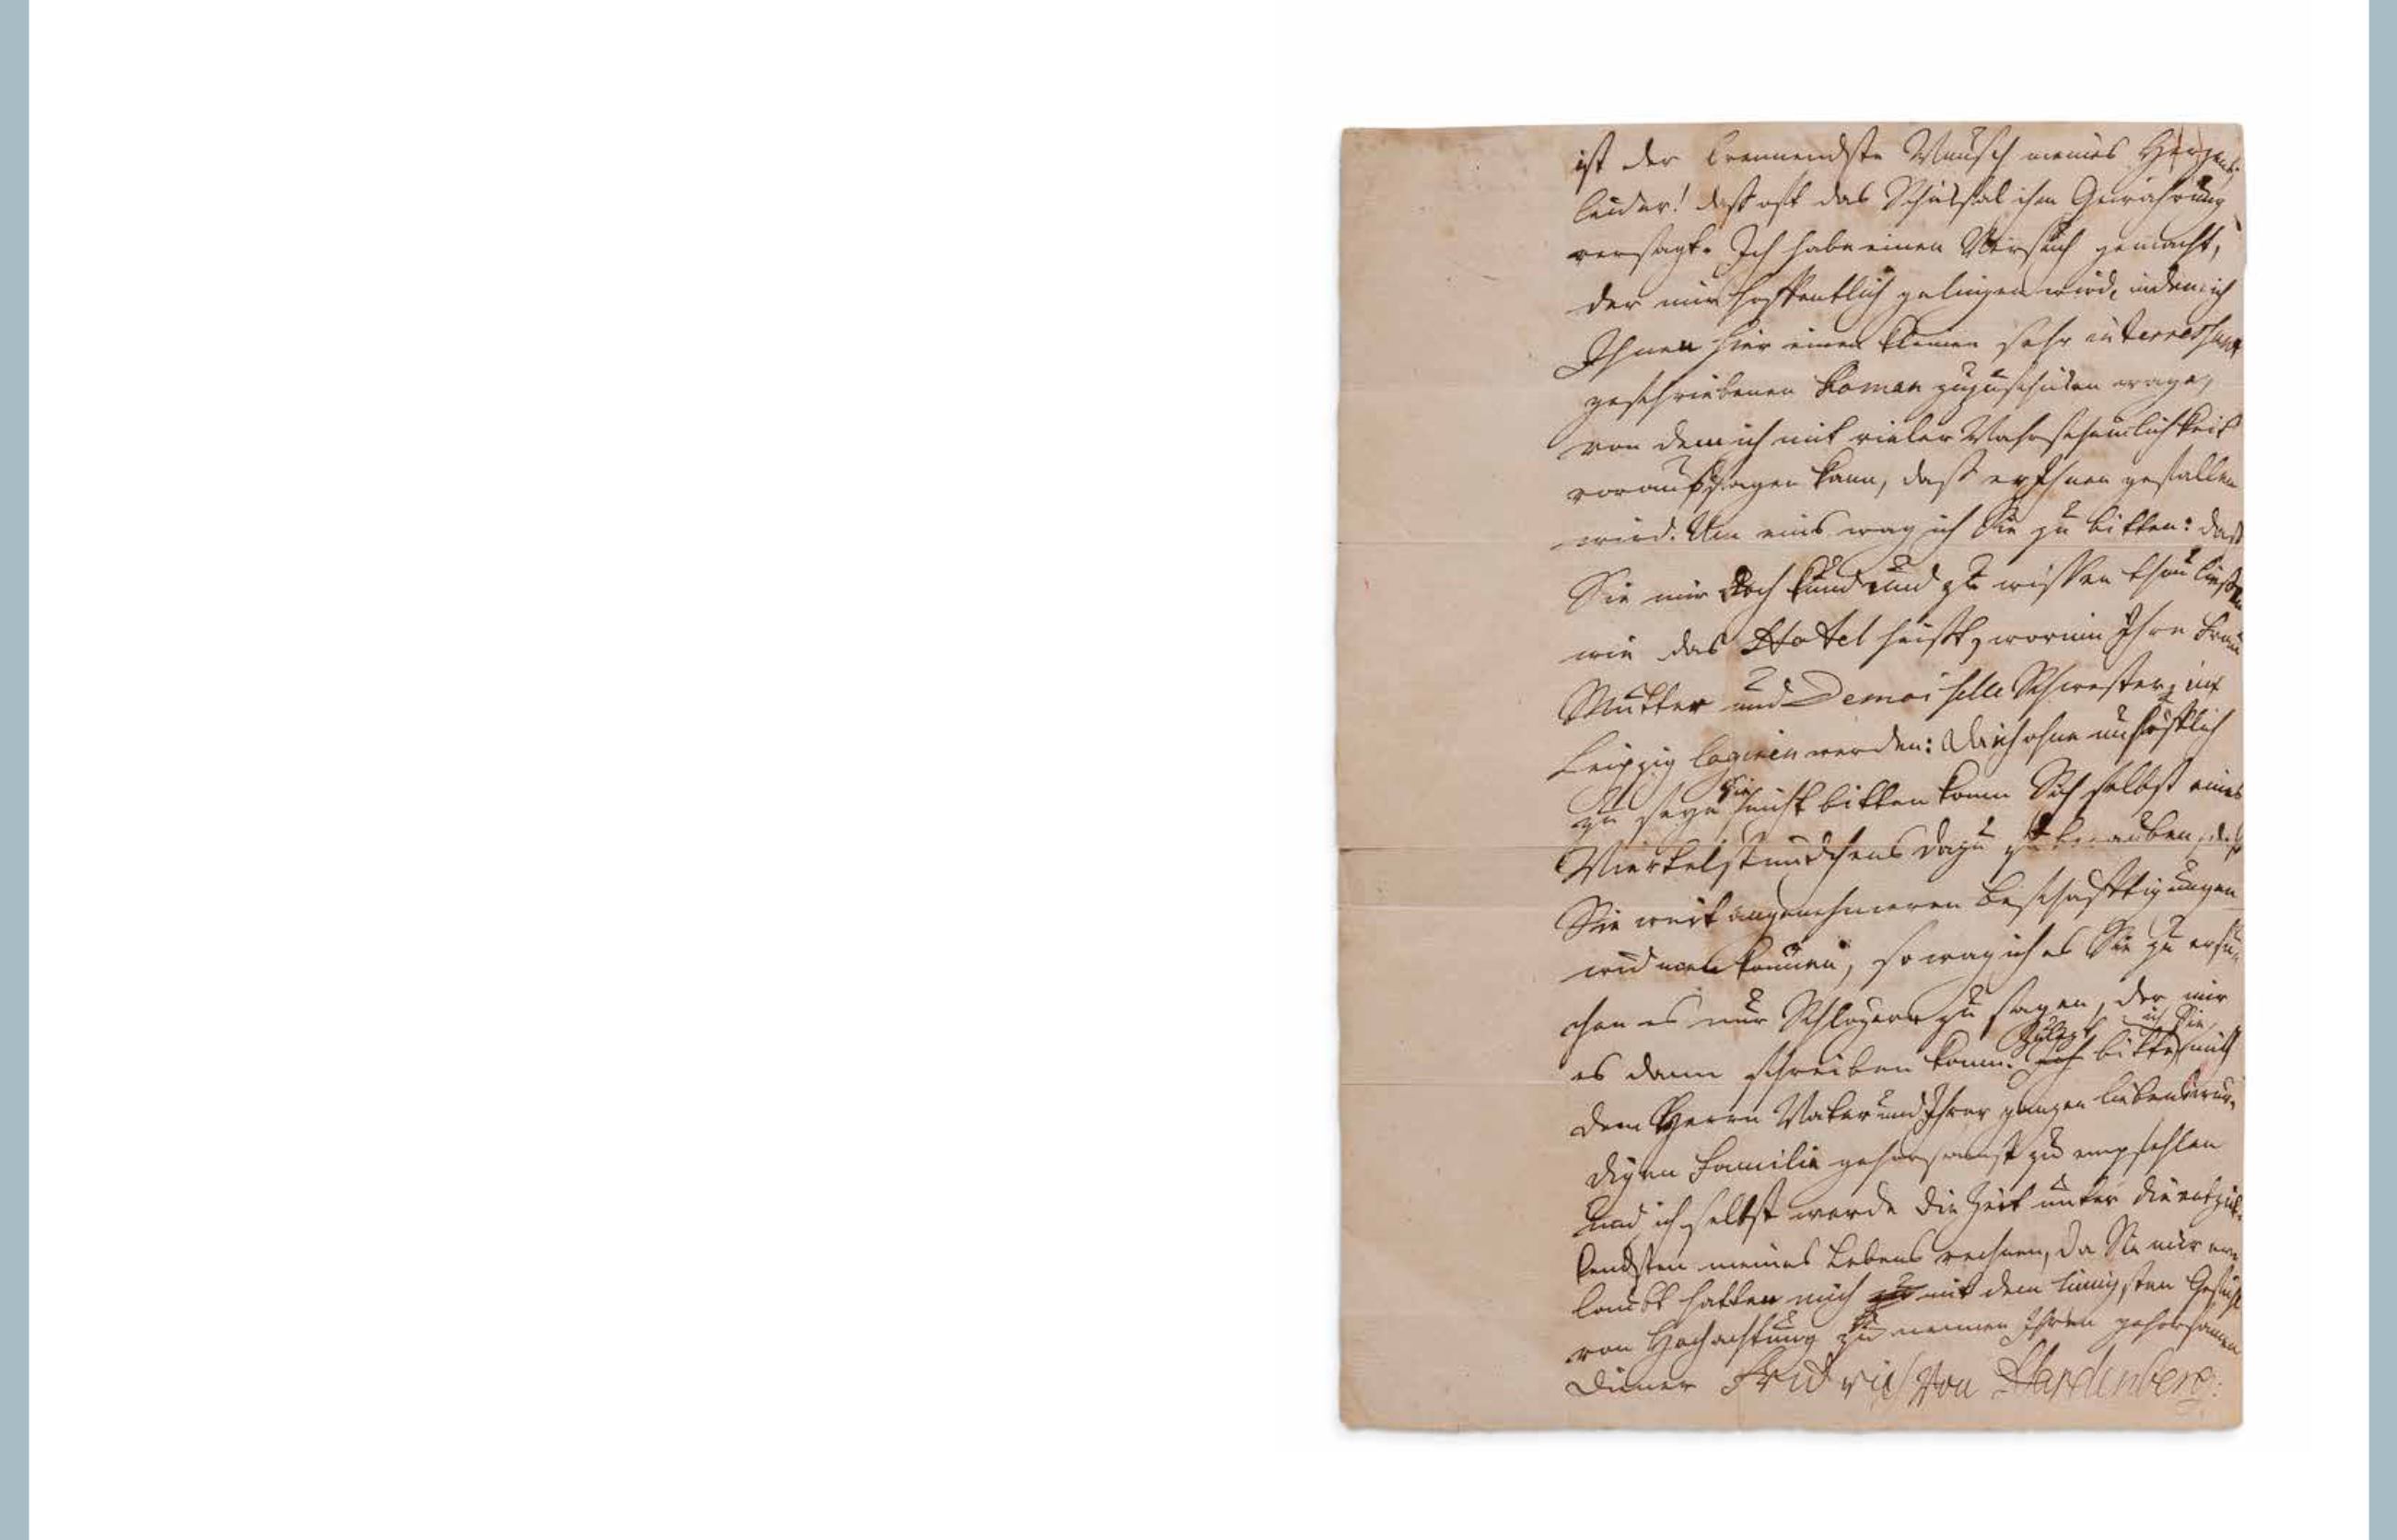 ist der brennendste Wunsch meines Herzens,
leider! daß oft das Schicksal ihm Gewährung
versagt. Ich habe einen Versuch gemacht,
der mir hoffentlich gelingen wird, indem ich
Ihnen hier einen kleinen sehr interressant
geschriebenen Roman zuzuschicken wage,
von dem ich mit vieler Wahrscheinlichkeit
voraussagen kann, daß er Ihnen gefallen
wird. Um eins wag ich Sie zu bitten: daß
Sie mir doch kund und zu wissen thun ließen
wie das Hotel heißt, worinn Ihre Frau
Mutter und Demoiselle Schwester, in
Leipzig logiren werden: Da ich ohne unhöflich
zu seyn Sie nicht bitten kann Sich selbst eines
Viertelstündchens dazu zu berauben, das
Sie weit angenehmeren Beschäftigungen
widmen können, so wag ich es Sie zu ersu-
chen es nur Schlegern zu sagen, der mir
es dann schreiben kann. Zulezt bitte ich Sie, mich
dem Herrn Vater und Ihrer ganzen liebenswür-
digen Familie gehorsamst zu empfehlen
und ich selbst werde die Zeit unter die entzük-
kendsten meines Lebens rechnen, da Sie mir er-
laubt hatten mich mit dem innigsten Gefühl
von Hochachtung zu nennen Ihren gehorsamen
Diener Fridrich von Hardenberg.